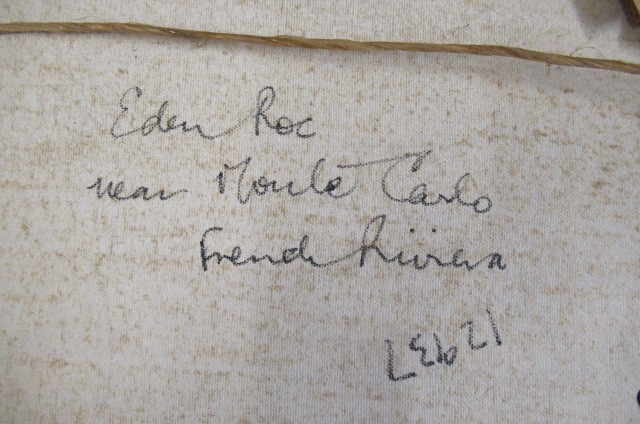 Eden Roc
near Monte Carlo
French Riviera
12937